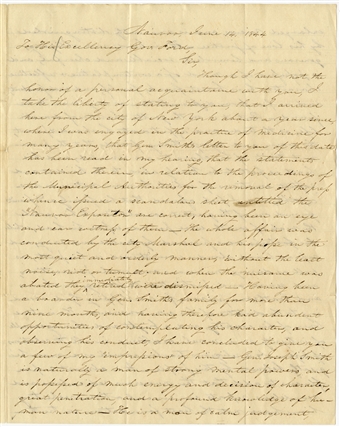 Nauvoo June 14, 1844
To His Excellency Gov Ford,
Sir
Though I have not the
honor of a personal acquaintance with you, I
take the liberty of stating to you that I arrived
here from the city of New York about a year since,
where I was engaged in the practice of medicine for
many years, that Gen. Smith's letter to you of this date
has been read in my hearing that the statements
contained therein in relation to the proceedings of
the Municipal Authorities for the removal of the press
whence issued a scandalous sheet entitled the
"Nauvoo Expositor" are correct, having been an eye
and ear witness of them — The whole affair was
conducted by the city Marshal and his posse in the
most quiet and orderly manner, without the least
noise, riot or tumult, and when the nuisance was
abated they immediately retired and were dismissed — Having been
a boarder in Gen. Smith's family for more than
nine months, and having therefore had abundant
opportunities of contemplating his character and
observing his conduct, I have concluded to give you
a few of my impressions of him — Gen. Joseph Smith
is naturally a man of strong mental powers, and
is possessed of much energy and decision of character,
great penetration, and a profound knowledge of hu-
man nature — He is a man of calm judgement,